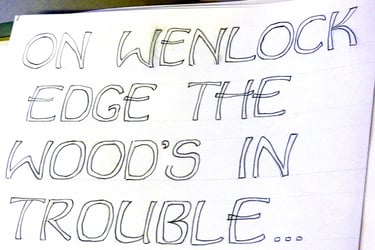 ON WENLOCK
EDGE THE
WOOD'S IN
TROUBLE...